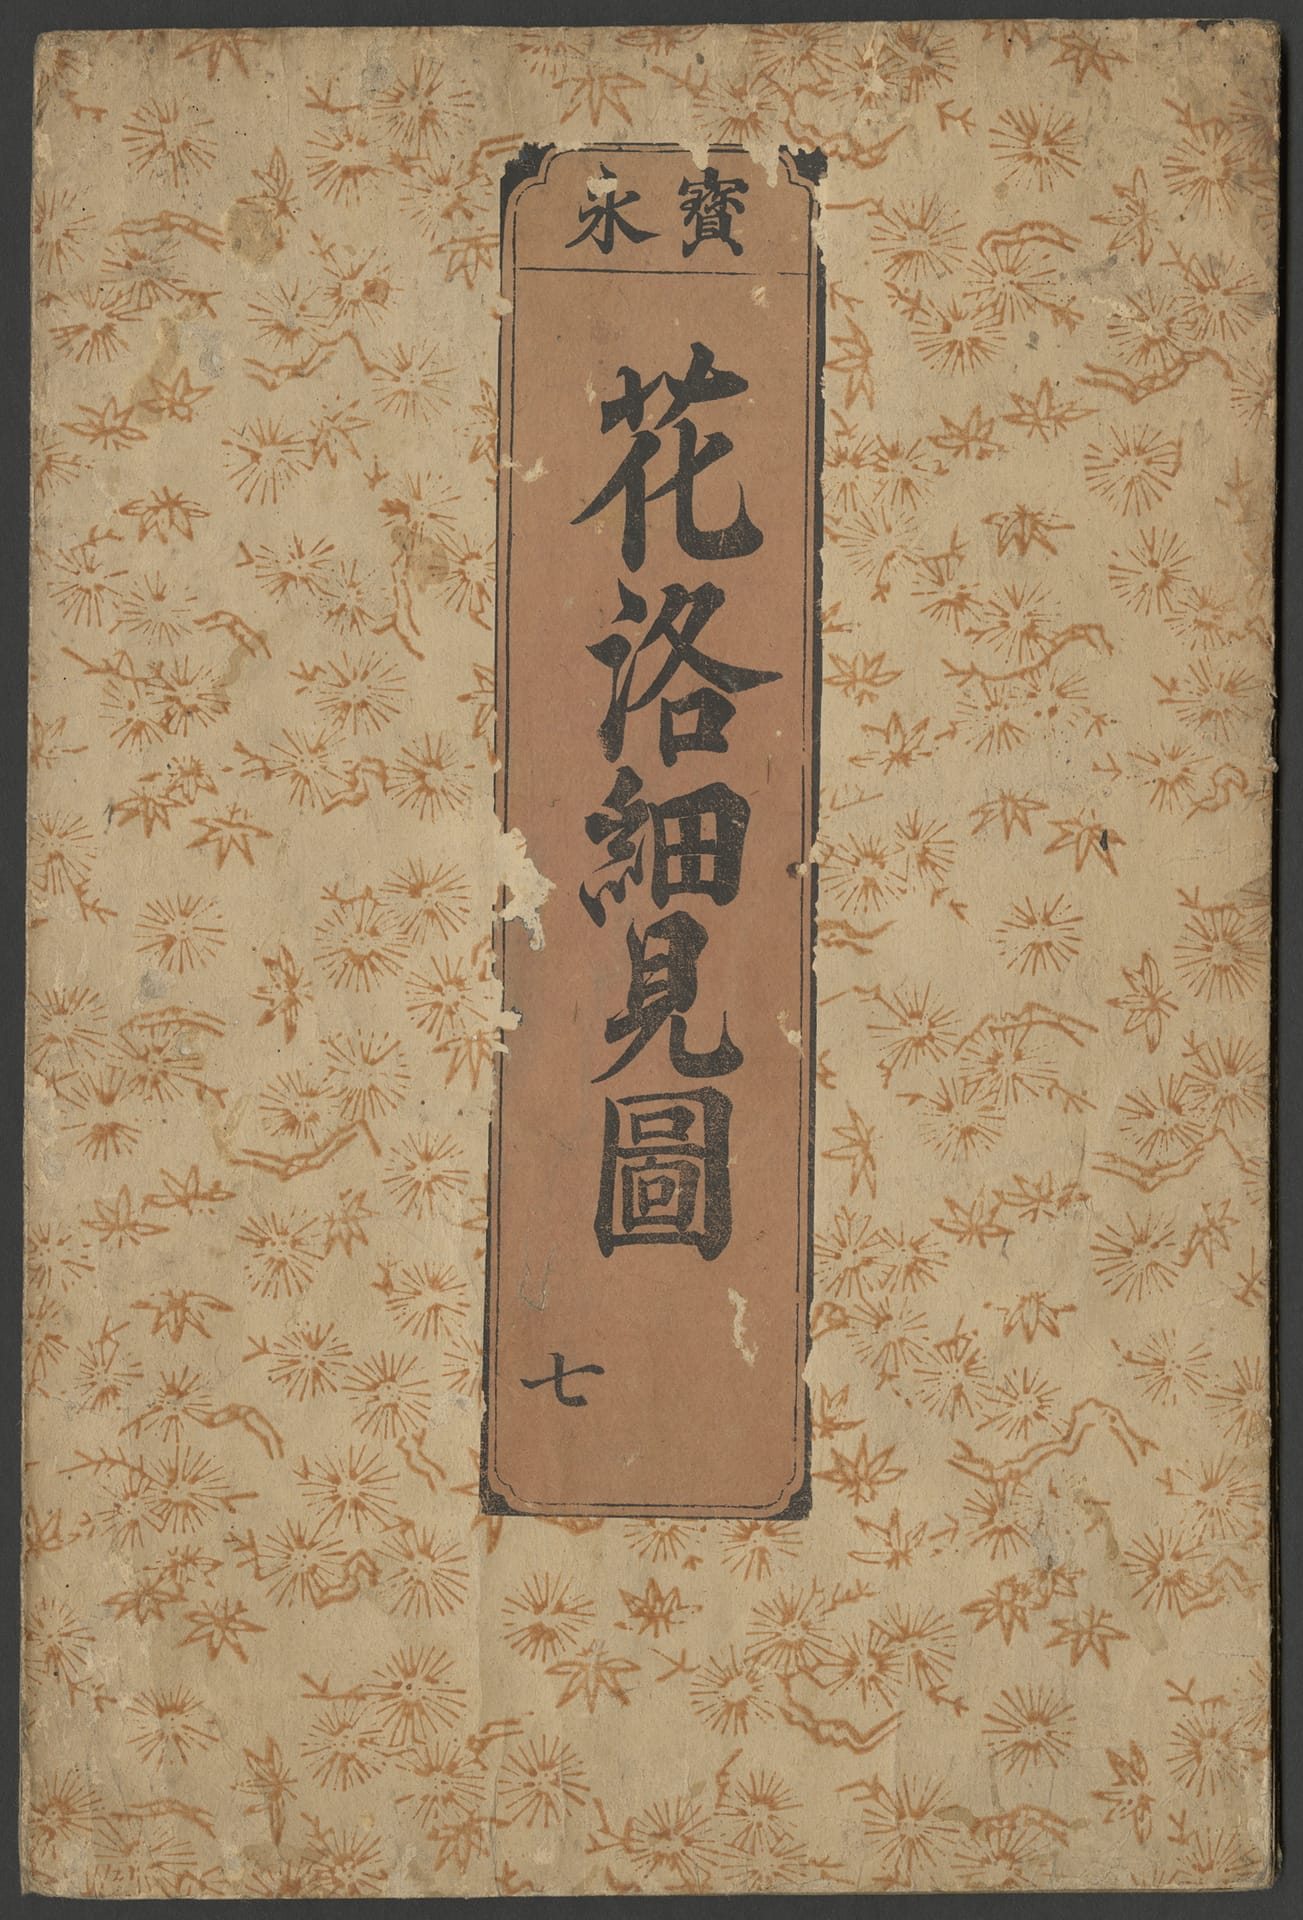 寶永
花洛細見圖
七